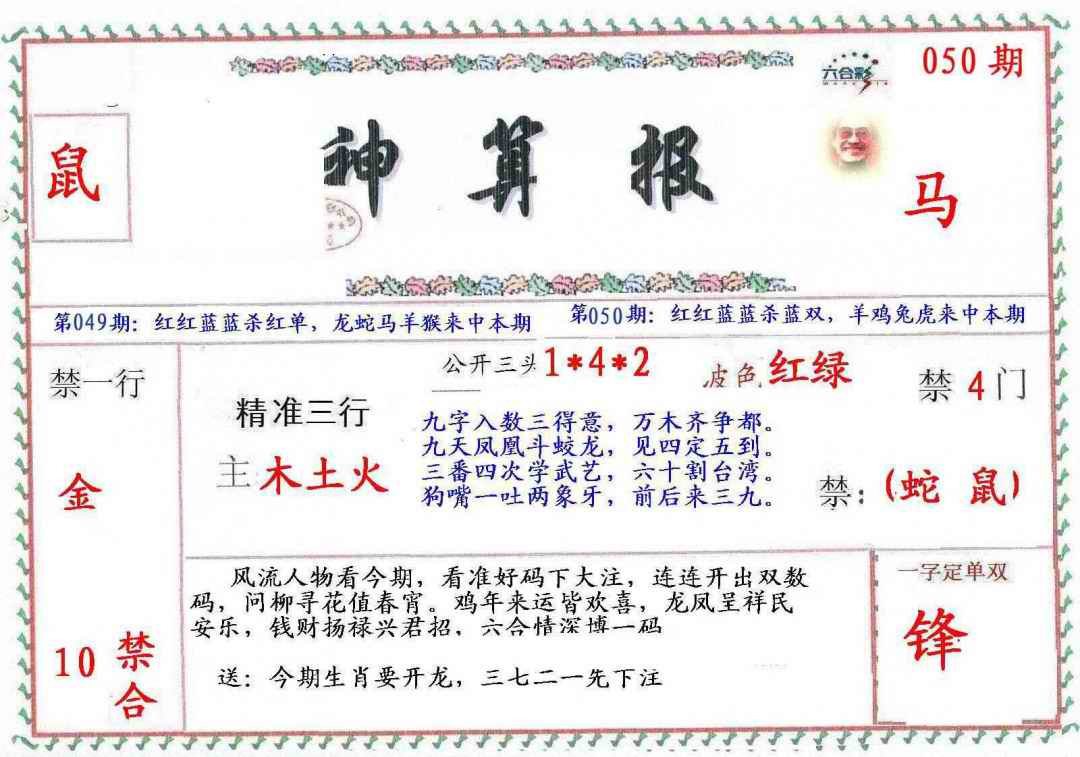 050期
六合彩
鼠
神算报
马
第049期：红红蓝蓝杀红单，龙蛇马羊猴来中本期
第050期：红红蓝蓝杀蓝双，羊鸡兔虎来中本期
禁一行
金
10禁合
精准三行
主 木土火
公开三头 1*4*2
波色 红绿
九字入数三得意，万木齐争都。
九天凤凰斗蛟龙，见四定五到。
三番四次学武艺，六十割台湾。
狗嘴一吐两象牙，前后来三九。
禁4门
禁：(蛇 鼠)
风流人物看今期，看准好码下大注，连连开出双数
码，问柳寻花值春宵。鸡年来运皆欢喜，龙凤呈祥民
安乐，钱财扬禄兴君招，六合情深博一码
送：今期生肖要开龙，三七二一先下注
一字定单双
锋